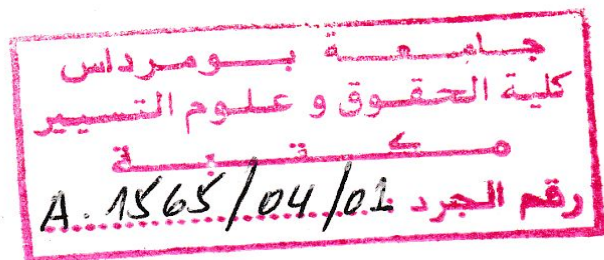 جامعة بومرداس
كلية الحقوق و علوم التسيير
مكتبة
رقم الجرد A. 1565/04/01